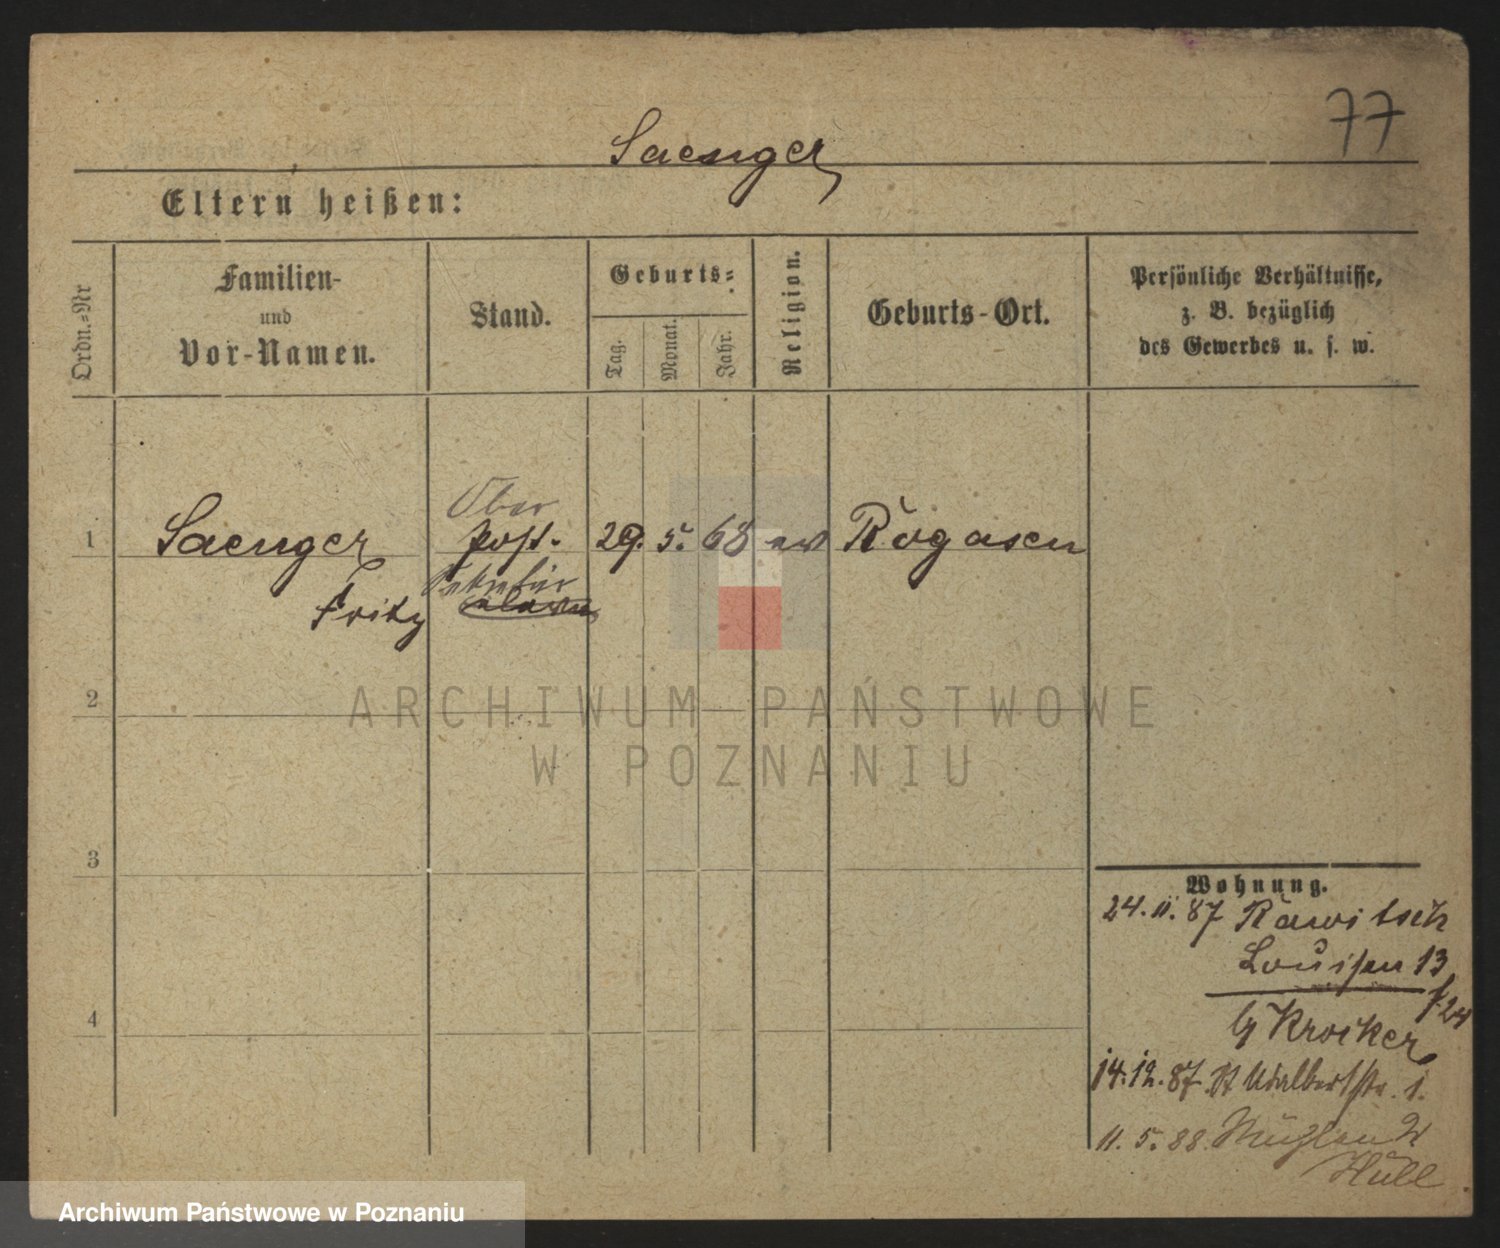 77
Saenger
Eltern heißen:
Ordn.-Nr
Familien-
und
Vor-Namen.
Stand.
Geburts-
Tag.
Monat.
Jahr.
Religion.
Geburts-Ort.
Persönliche Verhältnisse,
z. B. bezüglich
des Gewerbes u. s. w.
1
Saenger
Fritz
Ober
Post-
Sekretär
29. 5. 68 ev Rogasen
2
3
4
Wohnung.
24. 11. 87 Rawitsch
Louisen 13
f. 24
b/ Kroiker
14. 12. 87. St Adalbertstr. 1.
11. 5. 88. Mühlen
Hüll
ARCHIWUM PAŃSTWOWE
W POZNANIU
Archiwum Państwowe w Poznaniu